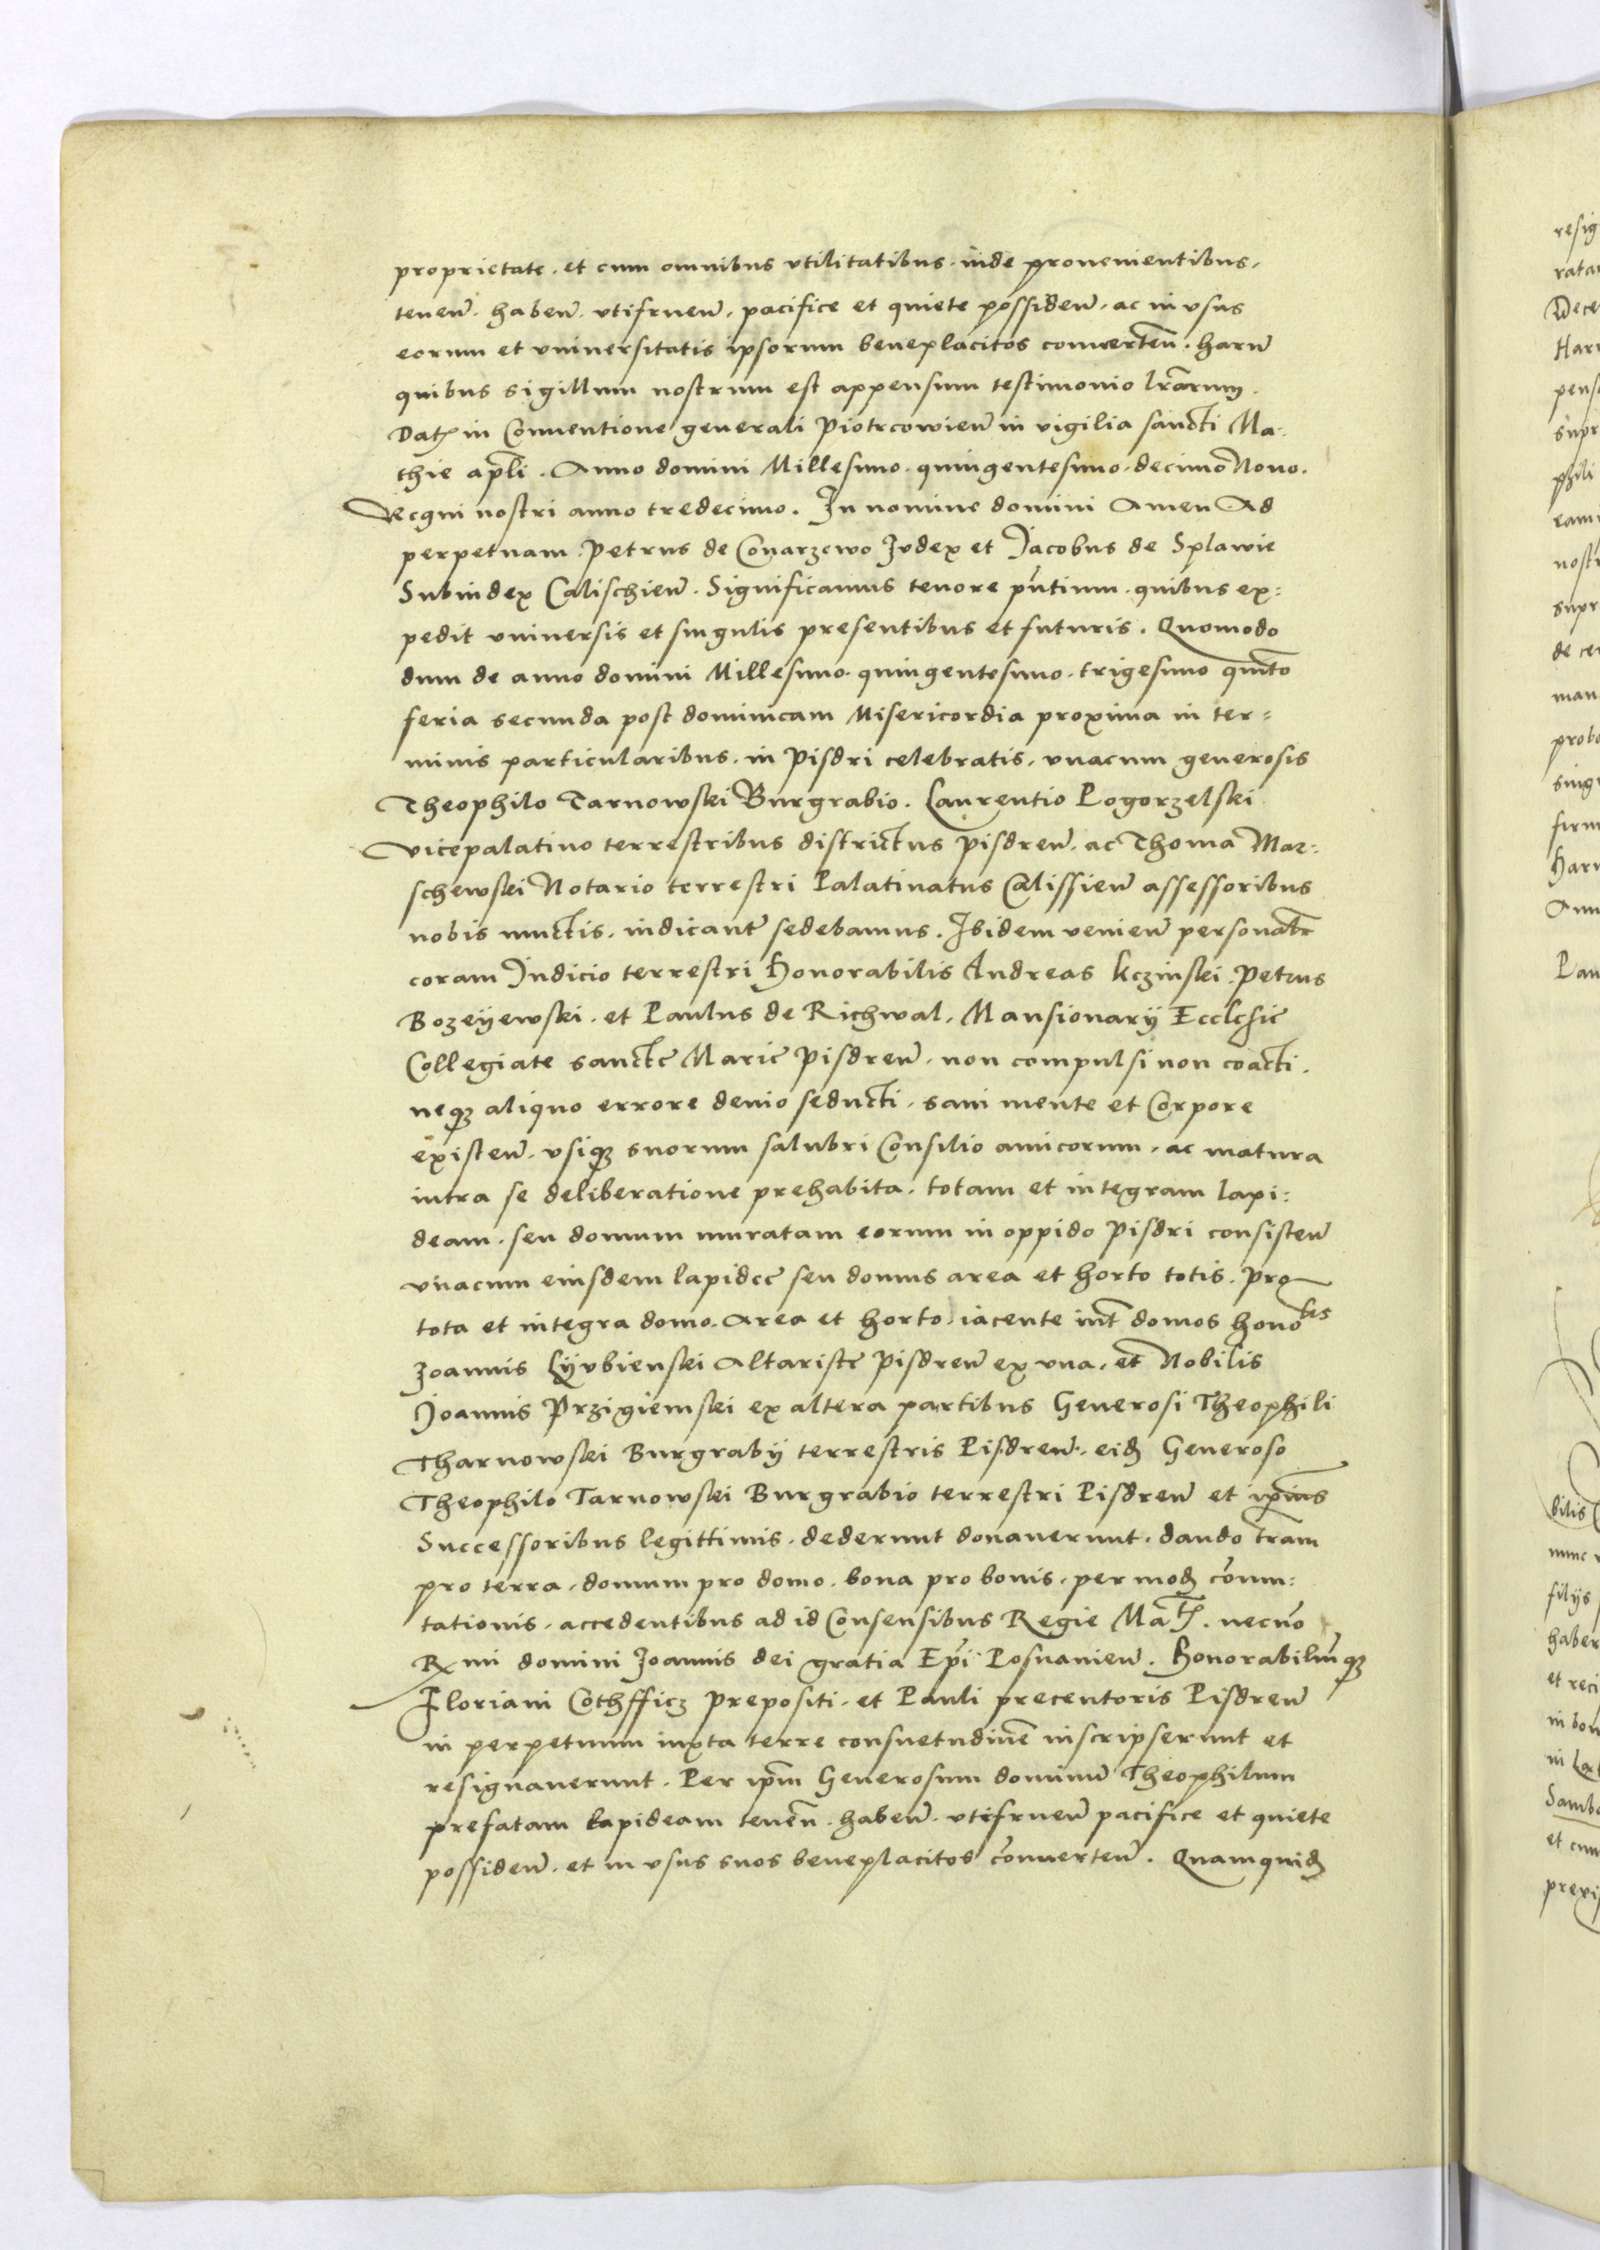 proprietate. et cum omnibus vtilitatibus. inde prouenientibus,
tenen̄. haben̄. vtifruen̄. pacifice et quiete possiden̄. ac in vsus
eorum et vniuersitatis ipsorum beneplacitos conuerten̄. harum̄
quibus sigillum nostrum est appensum testimonio lr̄arum.
Dat̄ in Conuentione generali Piotrcowien̄ in vigilia sancti Ma-
thie apl̄i. Anno domini Millesimo. quingentesimo. decimo Nono.
Regni nostri anno tredecimo. In nomine domini Amen Ad
perpetuam. Petrus de Conarzewo Iudex et Jacobus de Splawie
Subiudex Calischien̄. Significamus tenore pn̄tium. quibus ex=
pedit vniuersis et singulis presentibus et futuris. Quomodo
dum de anno domini Millesimo. quingentesimo. trigesimo quīto
feria secunda post dominicam Misericordia proxima in ter=
minis particularibus. in Pisdri celebratis, vnacum generosis
Theophilo Tarnowski Burgrabio. Laurentio Pogorzelski
vicepalatino terrestribus districtus Pisdren̄. ac Thoma Mar=
schewski Notario terrestri Palatinatus Calissien̄ assessoribus
nobis iunctis. iudicanter̄ sedebamus. Ibidem venien̄ personal̄r
coram Judicio terrestri Honorabilis Andreas Kczinski. Petrus
Bozeyewski. et Paulus de Richwal. Mansionarij Ecclesie
Collegiate sancte Marie Pisdren̄. non compulsi non coacti.
neq3 aliquo errore deuio seducti. sani mente et Corpore
existen̄. vsiq3 suorum salubri Consilio amicorum. ac matura
intra se deliberatione prehabita. totam et integram lapi=
deam. seu domum muratam eorum in oppido Pisdri consisten̄
vnacum eiusdem lapidee seu domus area et horto totis. pro
tota et integra domo. Area et horto iacente int̄ domos honobls
Joannis Lyvbienski Altariste Pisdren̄ ex vna. et Nobilis
Joannis Przigiemski ex altera partibus Generosi Theophili
Tharnowski Burgrabij terrestris Pisdren̄. eid3 Generoso
Theophilo Tarnowski Burgrabio terrestri Pisdren̄ et ip̄ius
Successoribus legittimis. dederunt donauerunt. dando tr̄am
pro terra. domum pro domo. bona pro bonis. per mod3 cōmu=
tationis. accedentibus ad id Consensibus Regie Mat̄. necnō
Rx̄mi domini Joannis dei gratia Ep̄i Posnanien̄. Honorabiliū q3
Floriani Cothfficz Prepositi. et Pauli precentoris Pisdren̄
in perpetuum iuxta terre consuetudinē inscripserunt et
resignauerunt. Per ip̄m Generosum dominū Theophilum
prefatam lapideam tenen̄. haben̄. vtifruen̄ pacifice et quiete
possiden̄. et in vsus suos beneplacitos cōuerten̄. Quamquid3